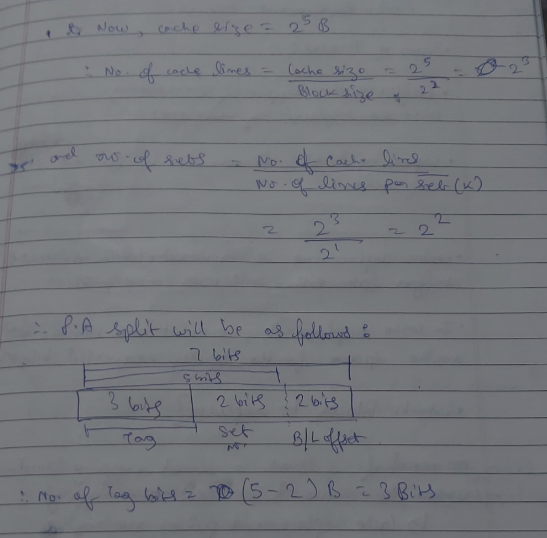 Now, cache size = 2^5 B
∴ No. of cache lines = Cache size / Block size = 2^5 / 2^2 = 2^3
and no. of sets = No. of Cache lines / No. of lines per set (K)
= 2^3 / 2^1 = 2^2
∴ P.A split will be as follows :
7 bits
5 bits
3 bits 2 bits 2 bits
Tag Set B/L offset
∴ No. of Tag bits = (5-2) B = 3 Bits